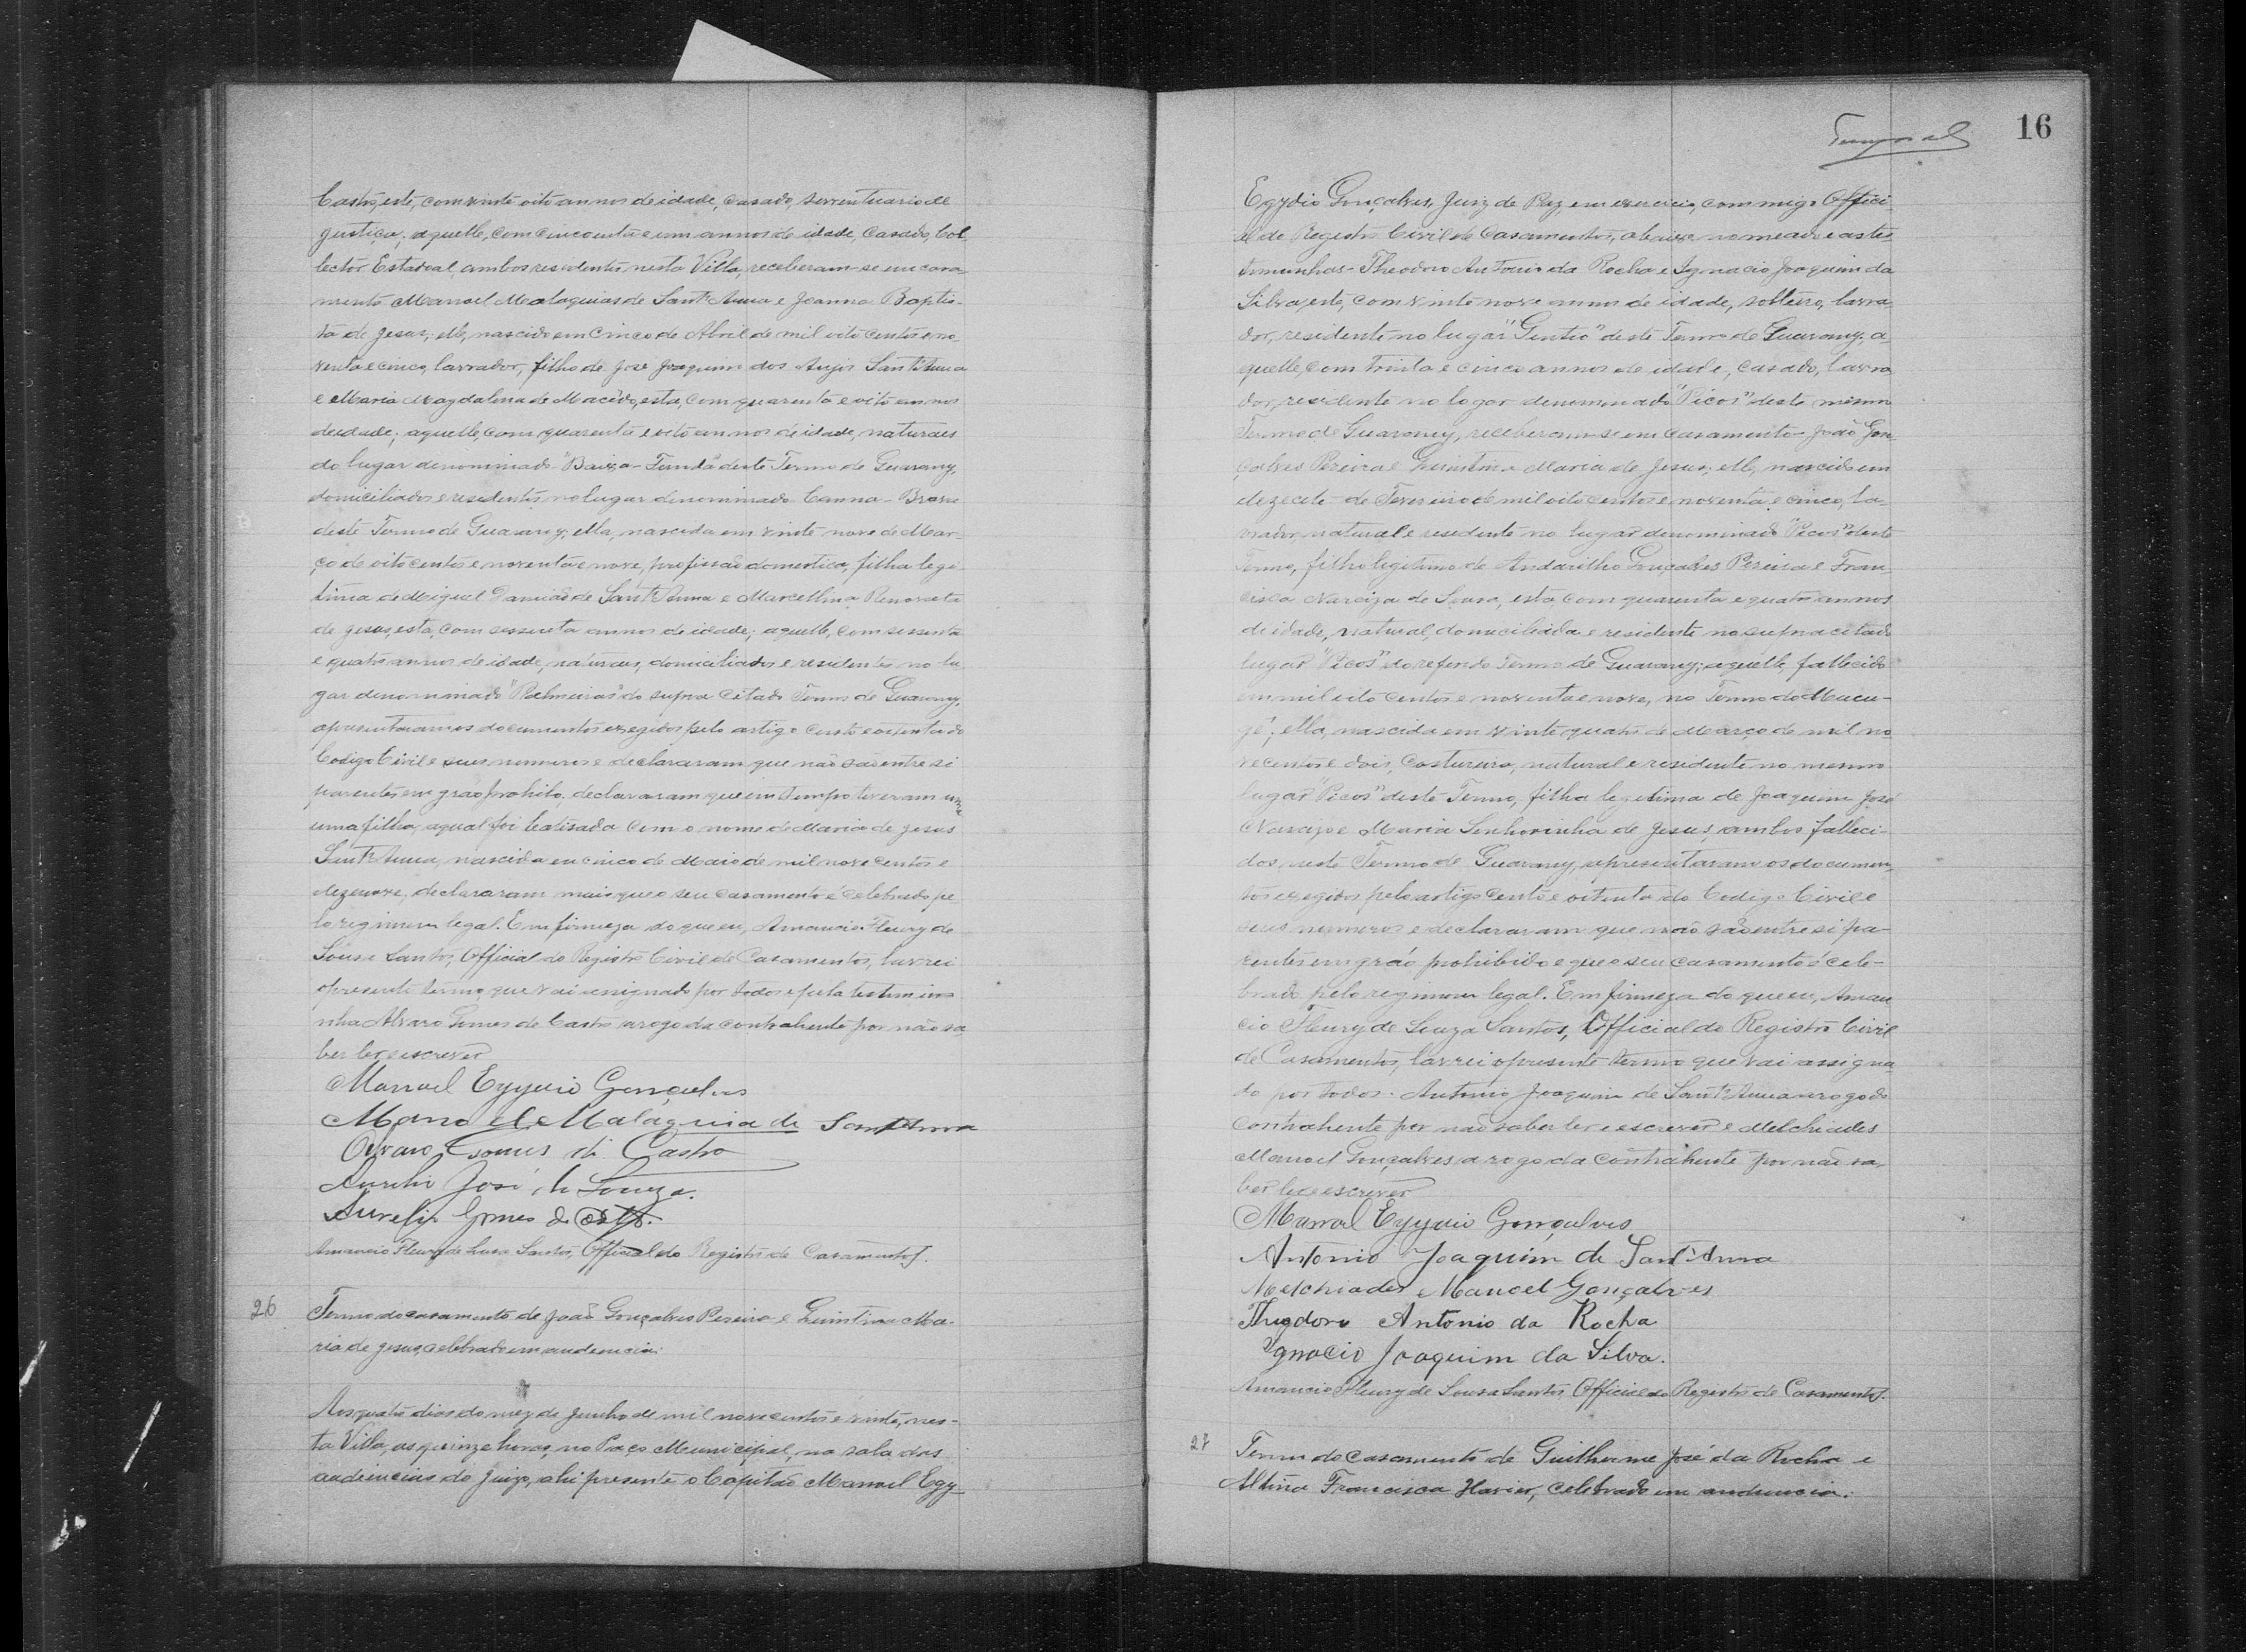 Castro, este, com vinte oito annos de idade, casado, serventuario de
justiça; aquelle, com cincoenta e um annos de idade, casado, Col
lector Estadoal, ambos residentes nesta Villa, receberam-se em casa
mento Manoel Malaquias de Sant'Anna e Joanna Baptis-
ta de Jesus; elle, nascido em cinco de Abril de mil oito centos e no
venta e cinco, lavrador, filho de José Joaquim dos Anjos Sant'Anna
e Maria Magdalena de Macêdo, esta, com quarenta e oito annos
de idade; aquelle com quarenta e oito annos de idade, naturaes
do lugar denominado "Baixa-Funda" deste Termo de Guarany,
domiciliados e residentes no lugar denominado Canna-Brava
deste Termo de Guarany; ella, nascida em vinte nove de Mar-
ço de oito centos e noventa e nove, profissão domestica, filha legi-
tima de Miguel Damião de Sant'Anna e Marcellina Renovata
de Jesus, esta, com sessenta annos de idade; aquelle, com sessenta
e quatro annos de idade, naturaes, domiciliados e residentes no lu
gar denominado "Palmeiras" do supra citado Termo de Guarany,
apresentaram os documentos exegidos pelo artigo cento e oitenta do
Codigo Civil e seus numeros e declararam que não são entre si
parentes em gráo prohibo, declararam que em tempo tiveram
uma filha, a qual foi batisada com o nome de Maria de Jesus
Sant'Anna, nascida em cinco de Maio de mil nove centos e
dezenove, declararam mais que o seu casamento é celebrado pe
lo regimem legal. Em firmeza do que eu, Amancio Fleury de
Sousa Santos, Official do Registro Civil de Casamentos, lavrei
o presente termo que vai assignado por todos e pela testemu
nha Alvaro Gomes de Castro a rogo da contrahente por não sa
ber ler e escrever
Manoel Egydio Gonçalves
Manoel Malaquia de SantAnna
Alvaro Gomes de Castro
Aurelio José de Souza.
Aurelio Gomes de Castro.
Amancio Fleury de Sousa Santos, Official do Registro de Casamentos.
26 Termo do casamento de João Gonçalves Pereira e Quintina Ma-
ria de Jesus, celebrado em audiencia:
Aos quatro dias do mez de Junho de mil nove centos e vinte, nes-
ta Villa, as quinze horas, no Paço Municipal, na sala das
audiencias do Juizo, ahi presente o Capitão Manoel Egy-
16
Egydio Gonçalves, Juiz de Paz, em exercicio, commigo Offici
al do Registro Civil de Casamentos, abaixo nomeado e as tes
temunhas - Theodoro Antonio da Rocha e Ignacio Joaquim da
Silva, este, com vinte nove annos de idade, solteiro, lavra
dor, residente no lugar "Gentio" deste Termo de Guarany; a-
quelle, com trinta e cinco annos de idade, casado, lavra
dor, residente no logar denominado "Picos" deste mesmo
Termo de Guarany, receberam-se em casamento - João Gon
çalves Pereira e Quintina Maria de Jesus; elle, nascido em
dezecete de Fevereiro de mil oito centos e noventa e cinco, la-
vrador, natural e residente no lugar denominado "Picos" deste
Termo, filho legitimo de Andarilho Gonçalves Pereira e Fran-
cisca Narciza de Sousa, esta com quarenta e quatro annos
de idade, natural, domiciliada e residente no supra citado
lugar "Picos" do referido Termo de Guarany; aquelle, fallecido
em mil oito centos e noventa e nove, no Termo do Mucu-
gê; ella, nascida em vinte quatro de Março de mil no
ve centos e dois, costureira, natural e residente no mesmo
lugar "Picos" deste Termo, filha legitima de Joaquim José
Narcizo e Maria Senhorinha de Jesus, ambos falleci-
dos, neste Termo de Guarany, apresentaram os documen-
tos exegidos pelo artigo cento e oitenta do Codigo Civil e
seus numeros e declararam que não são entre si pa-
rentes em gráo prohibido e que o seu casamento é cele-
brado pelo regimem legal. Em firmeza do que eu, Aman
cio Fleury de Souza Santos, Official do Registro Civil
de Casamentos, lavrei o presente termo que vai assigna
do por todos. Antonio Joaquim de Sant'Anna a rogo do
contrahente por não saber ler e escrever e Melchiades
Manoel Gonçalves a rogo da contrahente por não sa-
ber ler e escrever
Manoel Egydio Gonçalves
Antonio Joaquim de Sant'Anna
Melchiades Manoel Gonçalves
Theodoro Antonio da Rocha
Ignacio Joaquim da Silva.
Amancio Fleury de Sousa Santos, Official do Registro de Casamentos.
27 Termo do casamento de Guilherme José da Rocha e
Altina Francisca Xavier, celebrado em audiencia: